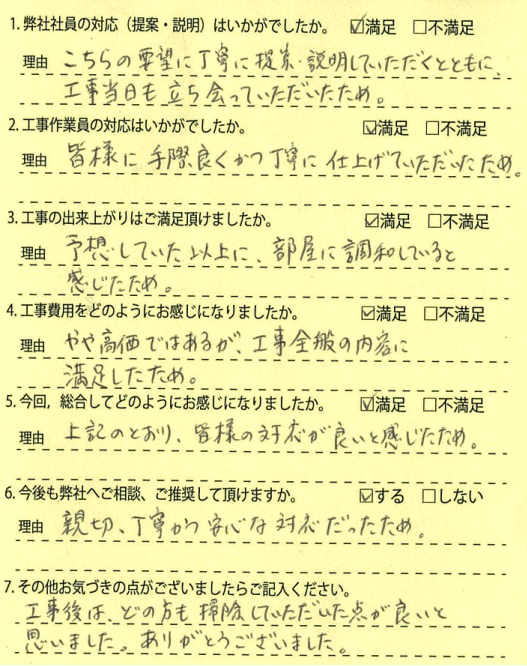 1. 弊社社員の対応（提案・説明）はいかがでしたか。 ☑満足 □不満足
理由 こちらの要望に丁寧に提案・説明していただくとともに、
工事当日も立ち会っていただいたため。
2. 工事作業員の対応はいかがでしたか。 ☑満足 □不満足
理由 皆様に手際良くかつ丁寧に仕上げていただいたため。
3. 工事の出来上がりはご満足頂けましたか。 ☑満足 □不満足
理由 予想していた以上に、部屋に調和していると
感じたため。
4. 工事費用をどのようにお感じになりましたか。 ☑満足 □不満足
理由 やや高価ではあるが、工事全般の内容に
満足したため。
5. 今回，総合してどのようにお感じになりましたか。 ☑満足 □不満足
理由 上記のとおり、皆様の対応が良いと感じたため。
6. 今後も弊社へご相談、ご推奨して頂けますか。 ☑する □しない
理由 親切、丁寧かつ安心な対応だったため。
7. その他お気づきの点がございましたらご記入ください。
工事後は、どの方も掃除していただいた点が良いと
思いました。ありがとうございました。